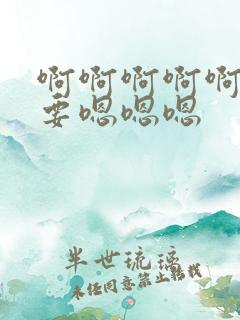 啊啊啊啊啊
要嗯嗯嗯
半世琉璃
未经同意禁止转载